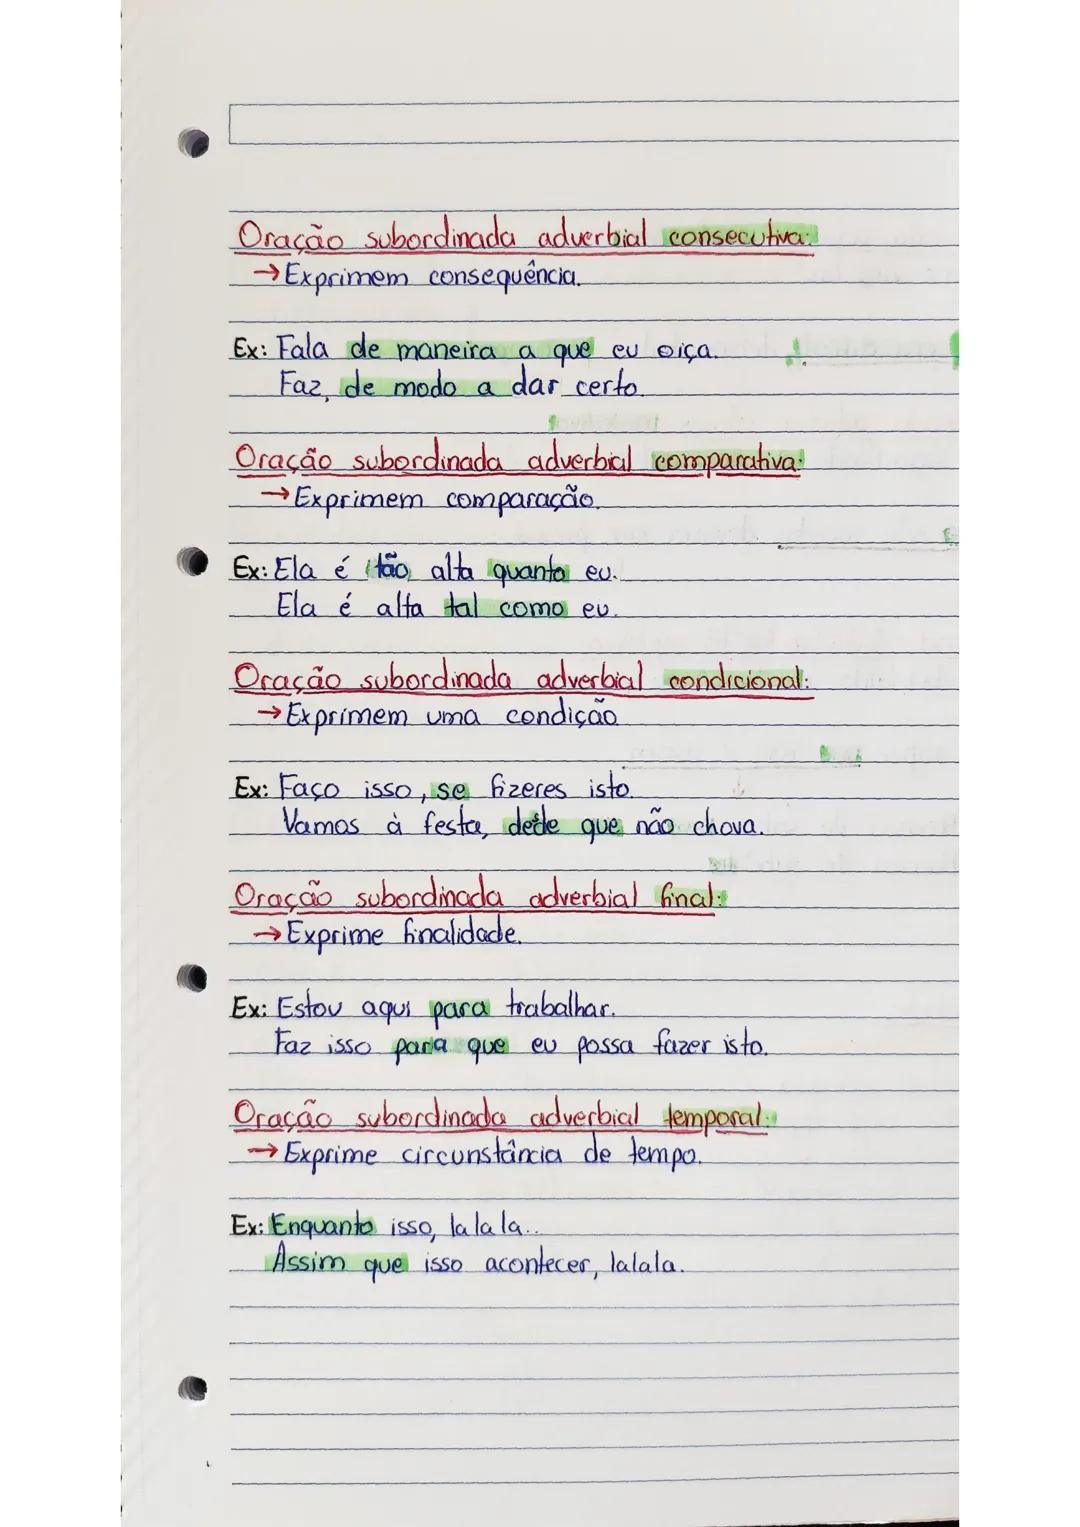 Oração subordinada adverbial consecutiva:
→ Exprimem consequência.
Ex: Fala de maneira a que eu oiça.
Faz, de modo a dar certo.
Oração subordinada adverbial comparativa:
→ Exprimem comparação.
Ex: Ela é tão alta quanto eu.
Ela é alta tal como eu.
Oração subordinada adverbial condicional:
→ Exprimem uma condição
Ex: Faço isso, se fizeres isto.
Vamos à festa, desde que não chova.
Oração subordinada adverbial final:
→ Exprime finalidade.
Ex: Estou aqui para trabalhar.
Faz isso para que eu possa fazer isto.
Oração subordinada adverbial temporal:
→ Exprime circunstância de tempo.
Ex: Enquanto isso, la la la..
Assim que isso acontecer, lalala.